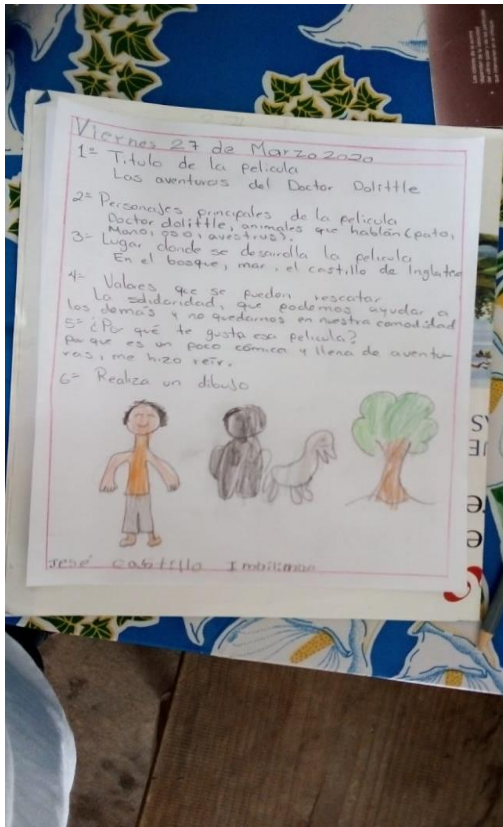 Viernes 27 de Marzo 2020
1= Titulo de la pelicula
Las aventuras del Doctor Dolittle
2= Personajes principales de la pelicula
Doctor dolittle, animales que hablan (pato,
Mono, oso, avestrus).
3= Lugar donde se desarrolla la pelicula
En el bosque, mar, el castillo de Inglater
4= Valores que se pueden rescatar
La solidaridad, que podemos ayudar a
los demás y no quedarnos en nuestra comodidad
5= ¿Por qué te gusta esa pelicula?
Por que es un poco cómica y llena de aventu-
ras, me hizo reír.
6= Realiza un dibujo
José Castillo